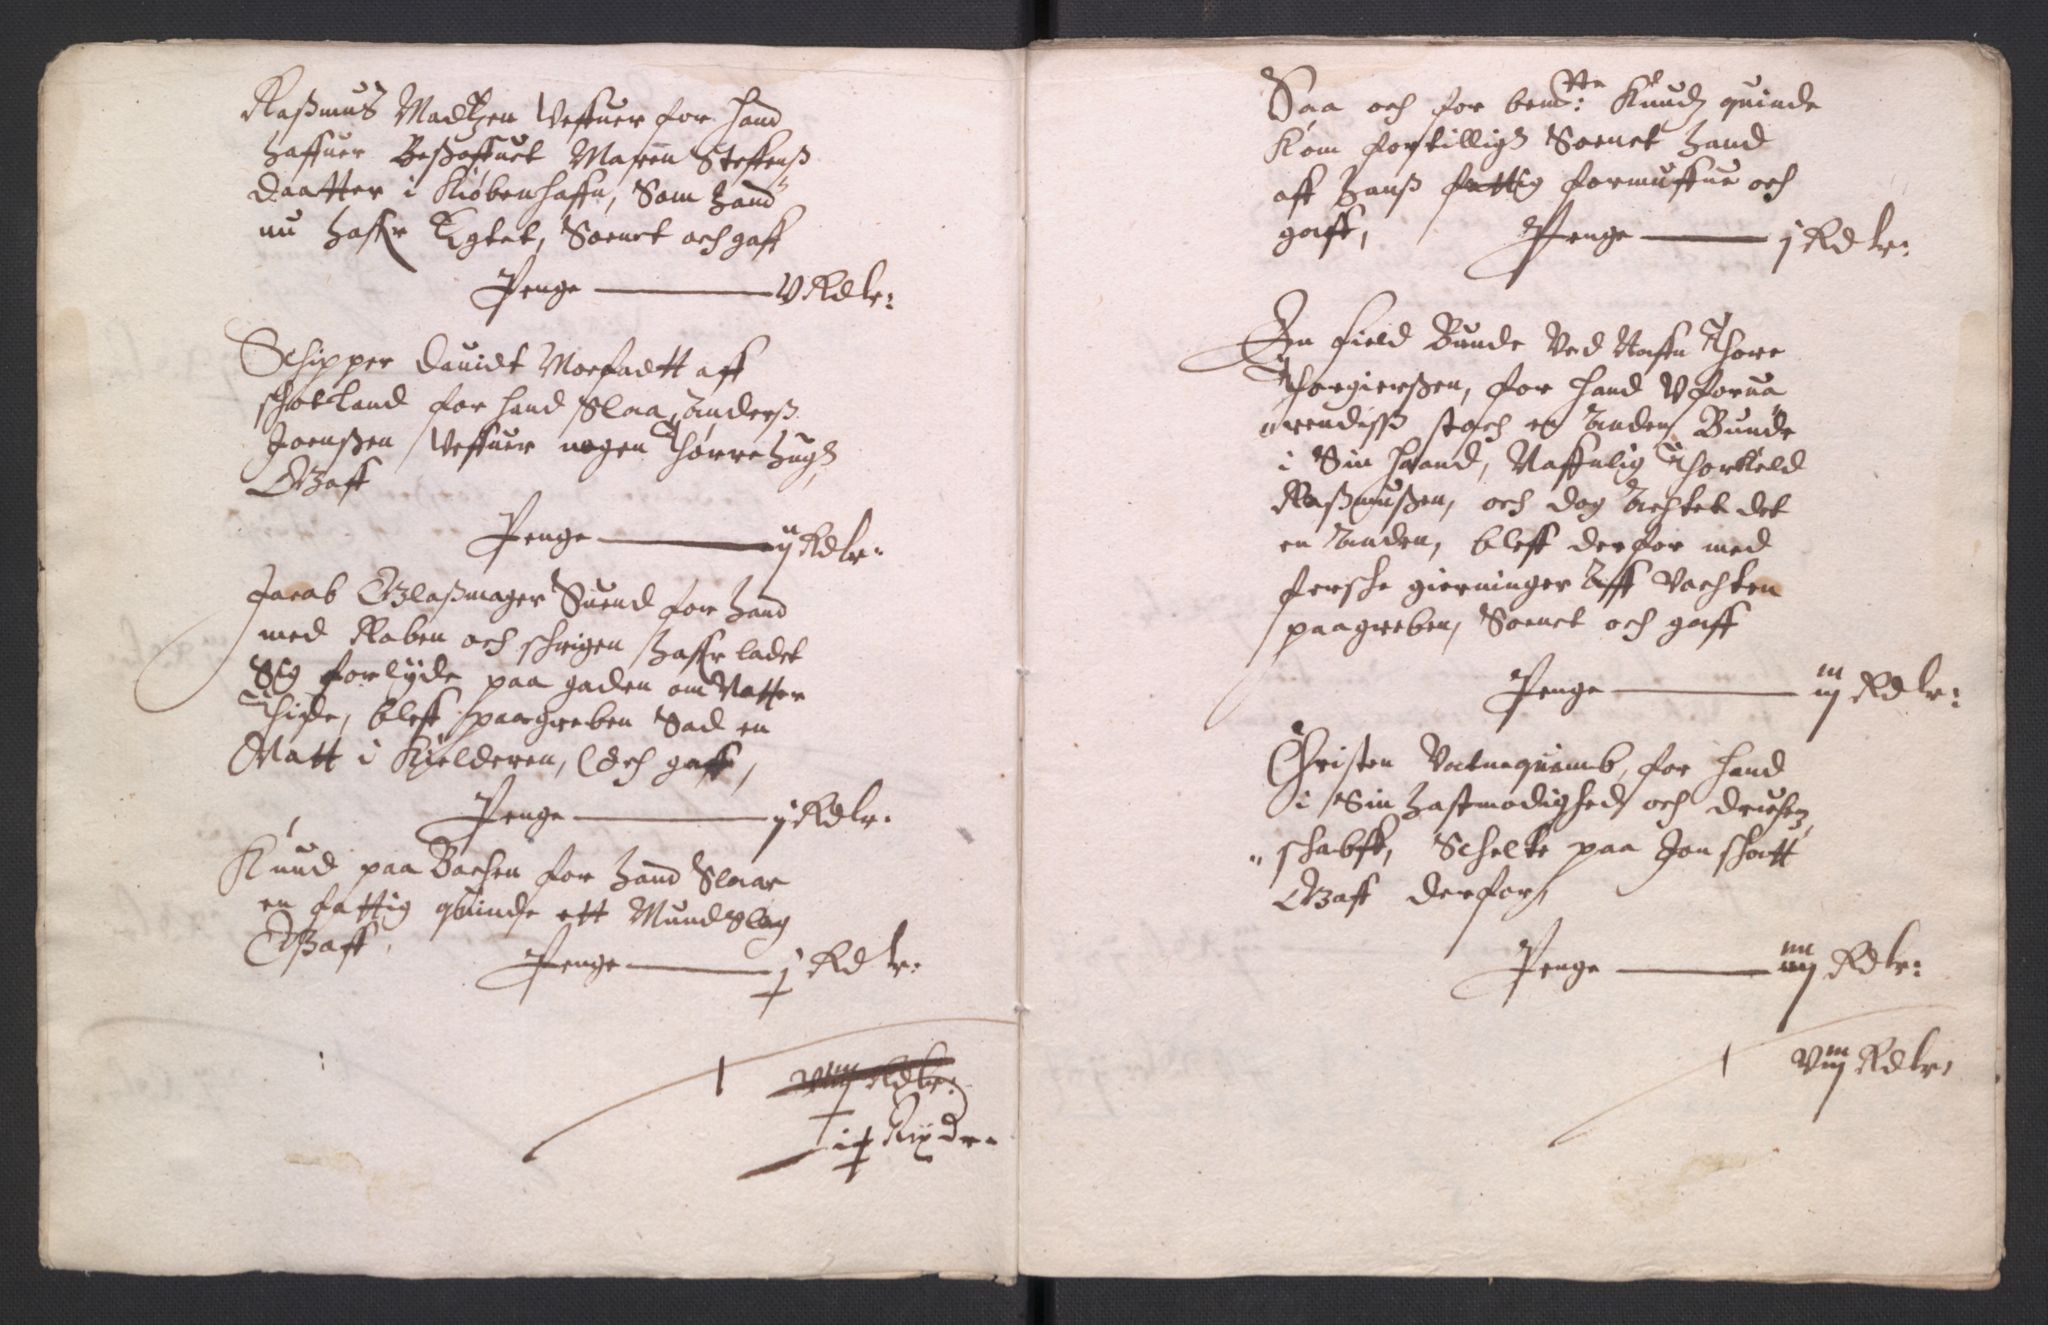 Raßmus Madtzen Veffuer for hand
haffuer Besoffuet Maren Steffenß
daatter i Kiøbenhaffn, Som hand
nu haffr Egtet, Soenet och gaff
Penge — V Rdlr:
Schipper Dauidt Morfadtt aff
shotland for hand Slaa Anderß
Joenßen Veffuer nogen Thørre hugh,
Gaff
Penge — ij Rdlr:
Jacob Glaßmager Suend for hand
med Raben och schrigen haffr ladet
Sig forlyde paa gaden om Natter
Thide, bleff paagreben Sad en
Natt i Kielderen, Och gaff,
Penge — j Rdlr:
Knud paa Bachen for hand Slaar
en fattig quinde ett Mundslag
Gaff.
Penge — j Rdlr:
Viiij Rdlr:
Rixdr.
Saa och for bemte: Knudz quinde
Kom fortilligh Soenet hand
aff hanß fattig formuffue och
gaff, Penge — j Rdlr:
En field Bunde Ved Naffn Thore
Thorgierßen, for hand Vforua
rendiss stach en Anden Bunde
i Sin haand, Naffnlig Thorkield
Raßmußen, och dog Achtet det
en Anden, bleff derfor med
fersche gierninger Aff Vachten
paagreben, Soenet och gaff
Penge — iiij Rdlr:
Christen Vatnequemb, for hand
i Sin hastmodighed och druchen
schabff, Schelte paa Jon shott
Gaff derfor,
Penge — Rdlr:
Viij Rdlr: